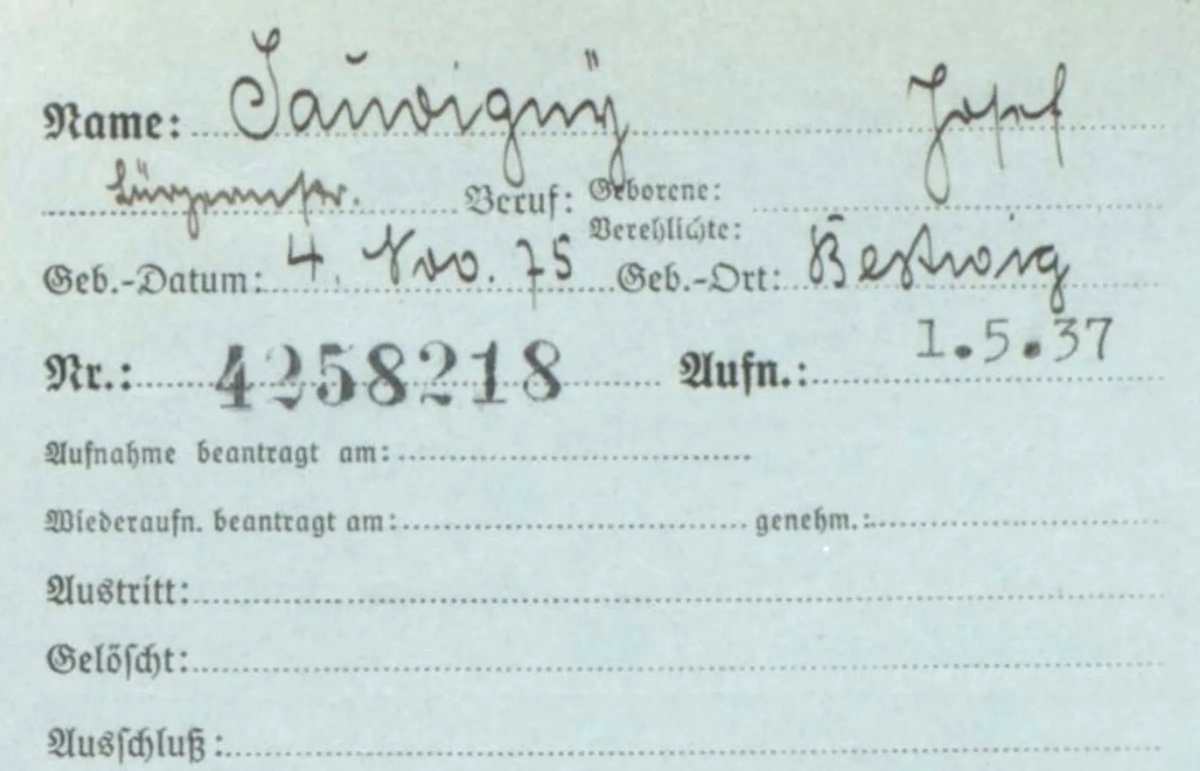 Name: Jauvigny Josef
Bürgermstr. Beruf: Geborene:
Verehlichte:
Geb.-Datum: 4. Nov. 75 Geb.-Ort: Bestwig
Nr.: 4258218 Aufn.: 1.5.37
Aufnahme beantragt am:
Wiederaufn. beantragt am: genehm.:
Austritt:
Gelöscht:
Ausschluß: